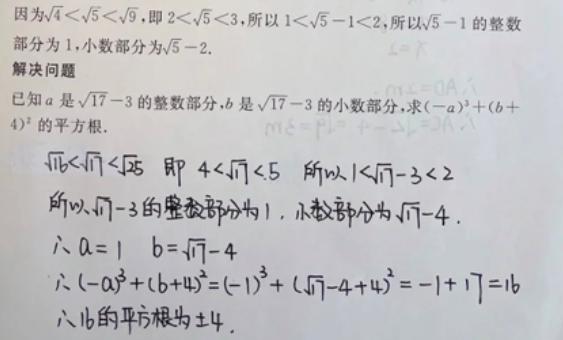 因为√4<√5<√9,即2<√5<3,所以1<√5-1<2,所以√5-1的整数
部分为1,小数部分为√5-2.
解决问题
已知a是√17-3的整数部分,b是√17-3的小数部分,求(-a)³+(b+
4)²的平方根.
√16<√17<√25 即 4<√17<5 所以1<√17-3<2
所以√17-3的整数部分为1,小数部分为√17-4.
∴a=1 b=√17-4
∴(-a)³+(b+4)²=(-1)³+(√17-4+4)²=-1+17=16
∴16的平方根为±4.